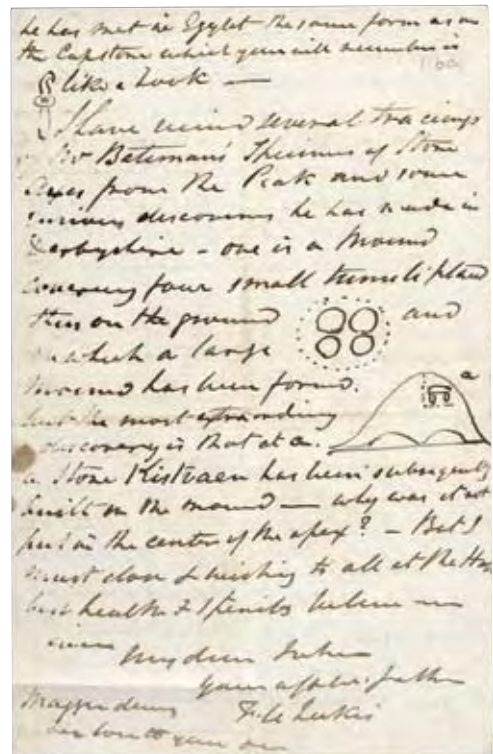 he has met in Egypt the same form as on
the Capstone which you will remember is
like a hook —
I have received several tracings
of Mr Bateman's Specimens of Stone
Axes from the Peak and some
discoveries he has made in
Derbyshire - one is a Mound
covering four small tumuli placed
thus on the ground and
on which a large
Mound has been formed.
but the most extraordinary a
discovery is that at a.
a Stone Kistvaen has been subsequently
built on the mound — why was it not
put in the center of the apex? - But I
must close & wishing to all at the
best health & Spirits believe me
ever
My dear
your affecte. father
F C Lukis
Maggy
love to you